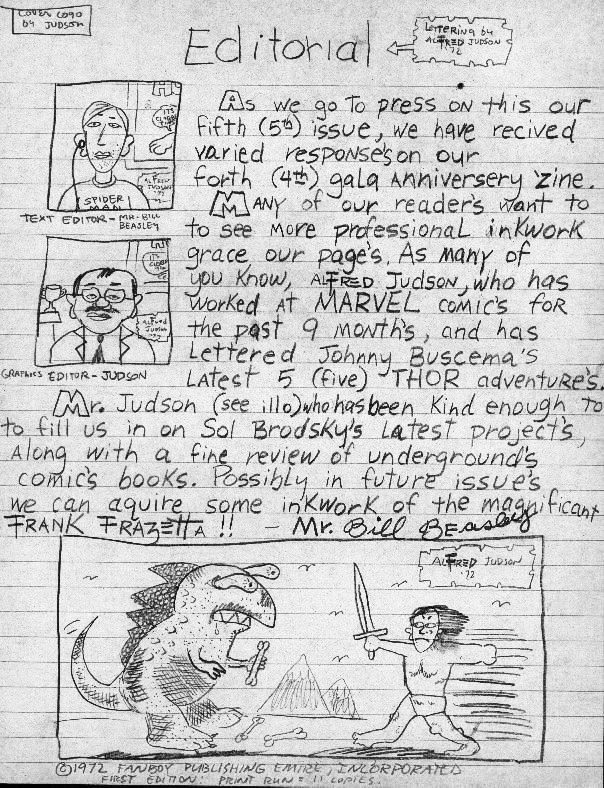 COVER LOGO
by JUDSON
Editorial
LETTERING by
ALFRED JUDSON
'72
As we go to press on this our
fifth (5th) issue, we have recived
varied response's on our
forth (4th) gala Anniversery 'zine.
MANY of our reader's want to
to see more professional inkwork
grace our page's. As many of
you know, ALFRED JUDSON, who has
worked at MARVEL comic's for
the past 9 month's, and has
Lettered Johnny Buscema's
Latest 5 (five) THOR adventure's.
Mr. Judson (see illo) who has been kind enough to
to fill us in on Sol Brodsky's Latest project's,
Along with a fine review of underground's
comic's books. Possibly in future issue's
we can aquire some inkwork of the magnificant
FRANK FRAZETTA !! - Mr. Bill Beasley
ALFRED
JUDSON
'72
SPIDER
MAN
TEXT EDITOR - MR. BILL
BEASLEY
ALFRED
JUDSON
'72
GRAPHICS EDITOR - JUDSON
ALFRED JUDSON
'72
©1972 FANBOY PUBLISHING EMIRE, INCORPORATED
FIRST EDITION: PRINT RUN = 11 COPIES.